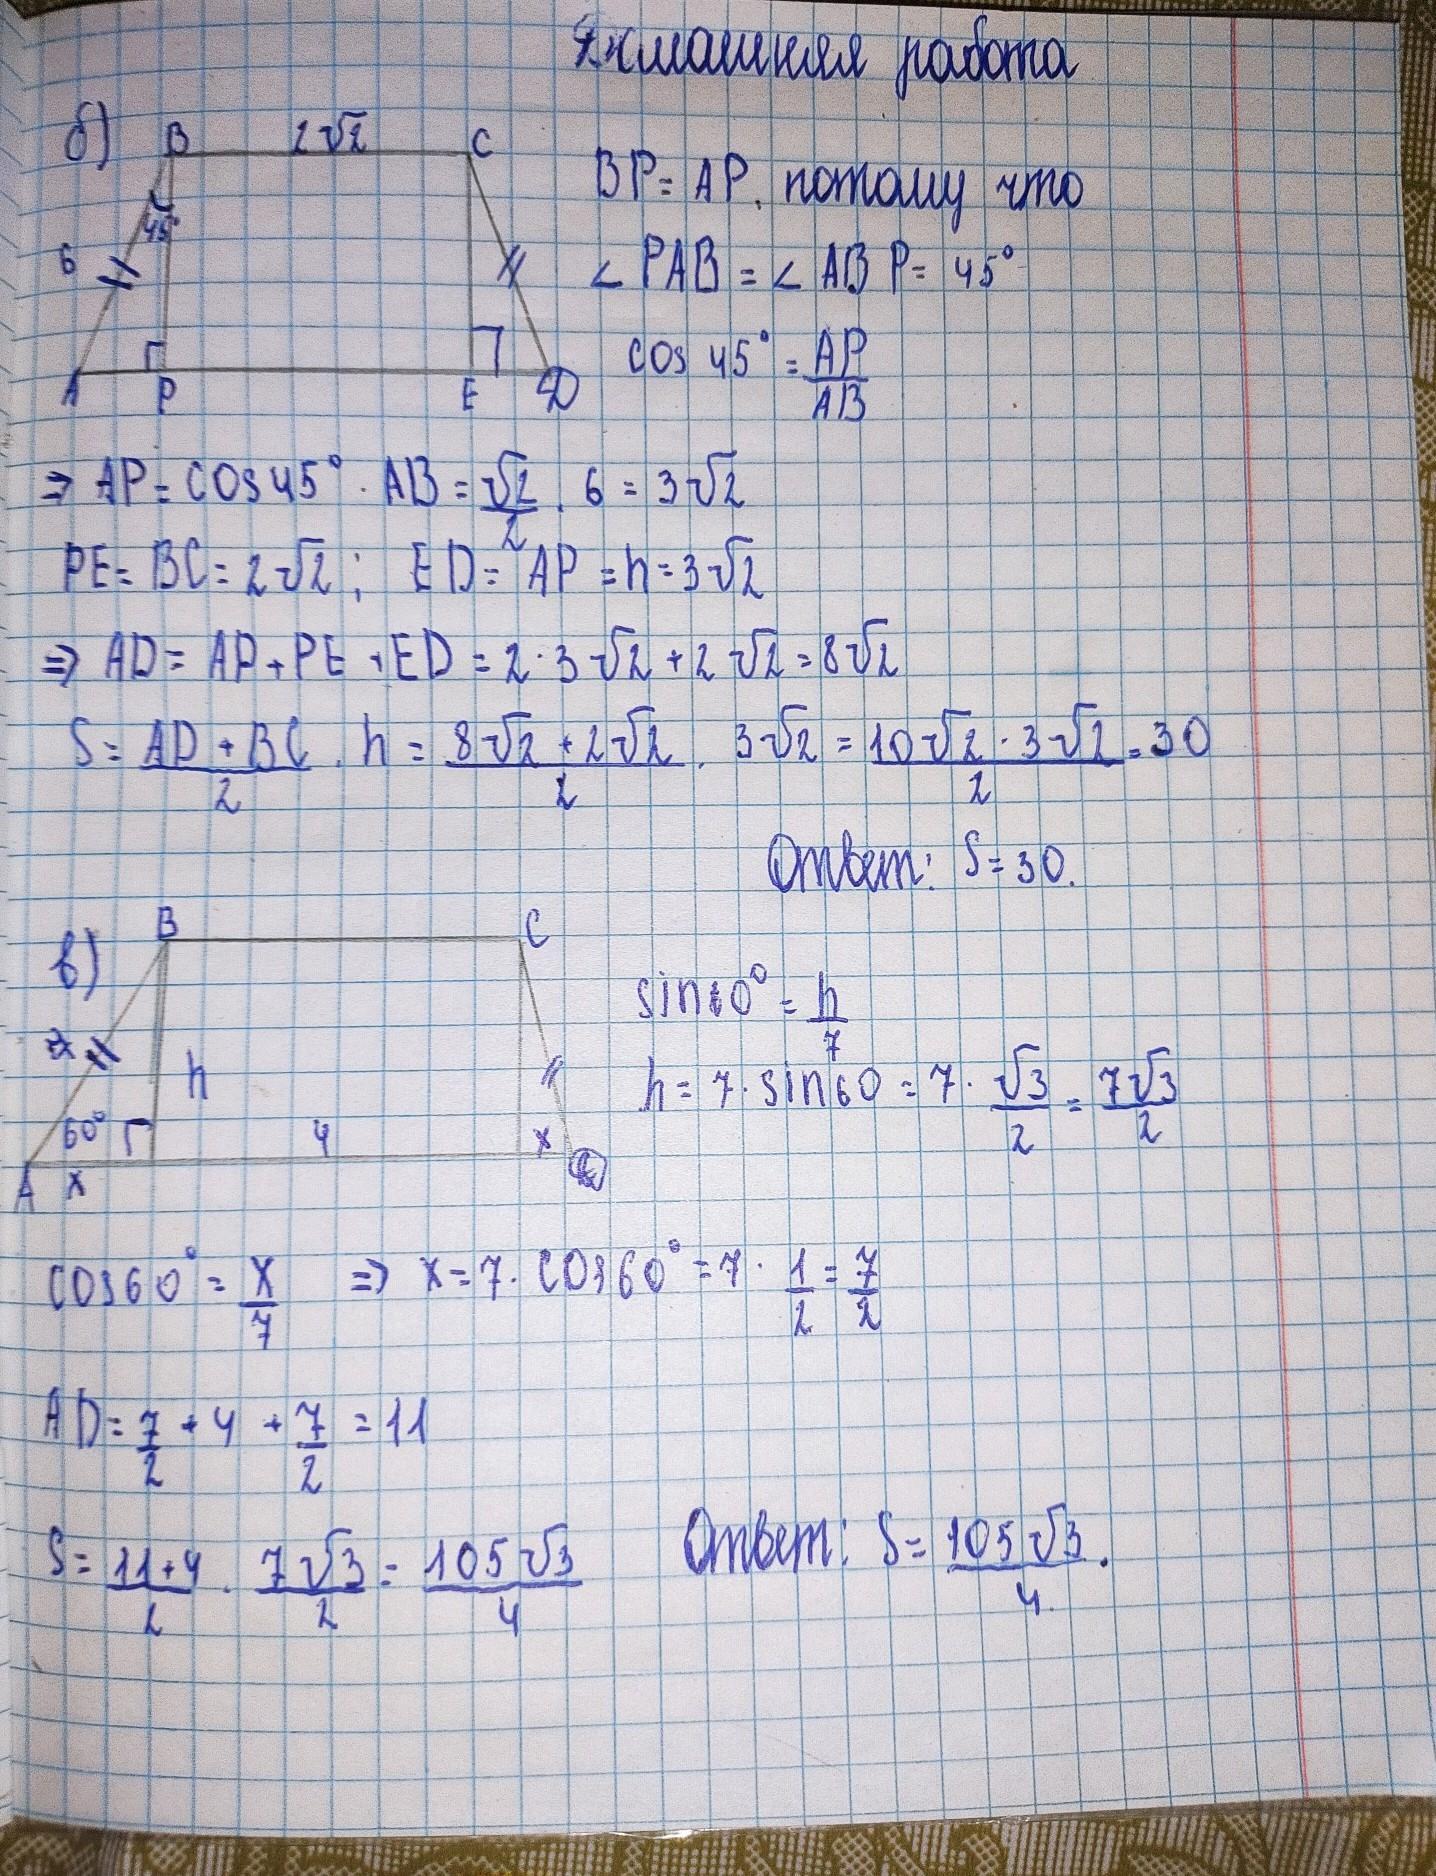 Домашняя работа
б) B 2√2 C
BP = AP, потому что
45°
6
∠ PAB = ∠ ABP = 45°
cos 45° = AP/AB
A P E D
⇒ AP = cos 45° · AB = √2/2 · 6 = 3√2
PE = BC = 2√2; ED = AP = h = 3√2
⇒ AD = AP + PE + ED = 2 · 3√2 + 2√2 = 8√2
S = (AD + BC)/2 · h = (8√2 + 2√2)/2 · 3√2 = (10√2 · 3√2)/2 = 30
Ответ: S = 30.
в) B C
sin 60° = h/7
h
h = 7 · sin 60 = 7 · √3/2 = 7√3/2
60° 4 x
A x
cos 60° = x/7 ⇒ x = 7 · cos 60° = 7 · 1/2 = 7/2
AD = 7/2 + 4 + 7/2 = 11
S = (11 + 4)/2 · 7√3/2 = 105√3/4 Ответ: S = 105√3/4.